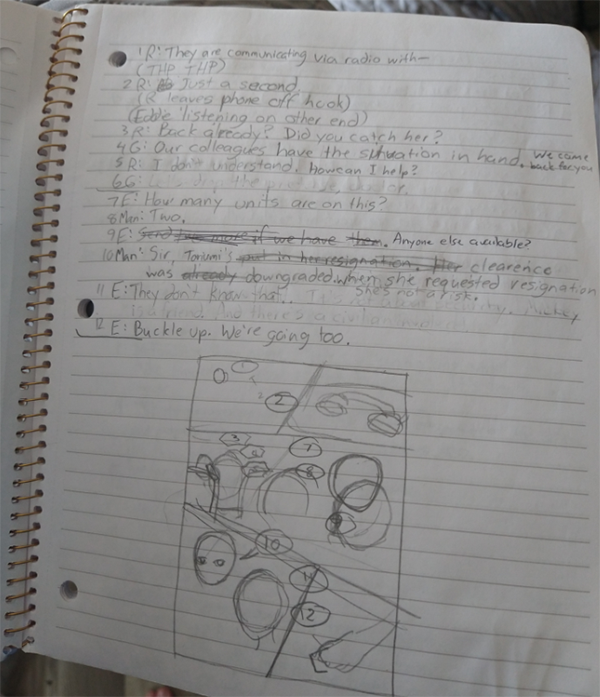 1 R: They are communicating via radio with—
(THP THP)
2 R: Just a second
(R leaves phone off hook)
(Eddie listening on other end)
3 R: Back already? Did you catch her?
4 G: Our colleagues have the situation in hand. We came back for you
5 R: I don't understand, how can I help?
6 G:
7 E: How many units are on this?
8 Man: Two.
9 E: Send two more if we have them. Anyone else available?
10 Man: Sir, Toriumi's out in her resignation. Her clearence
was already downgraded when she requested resignation
She's not a risk.
11 E: They don't know that..
And there's a civilian involved
12 E: Buckle up. We're going too.
1
2
3
7
8
9
10
11
12